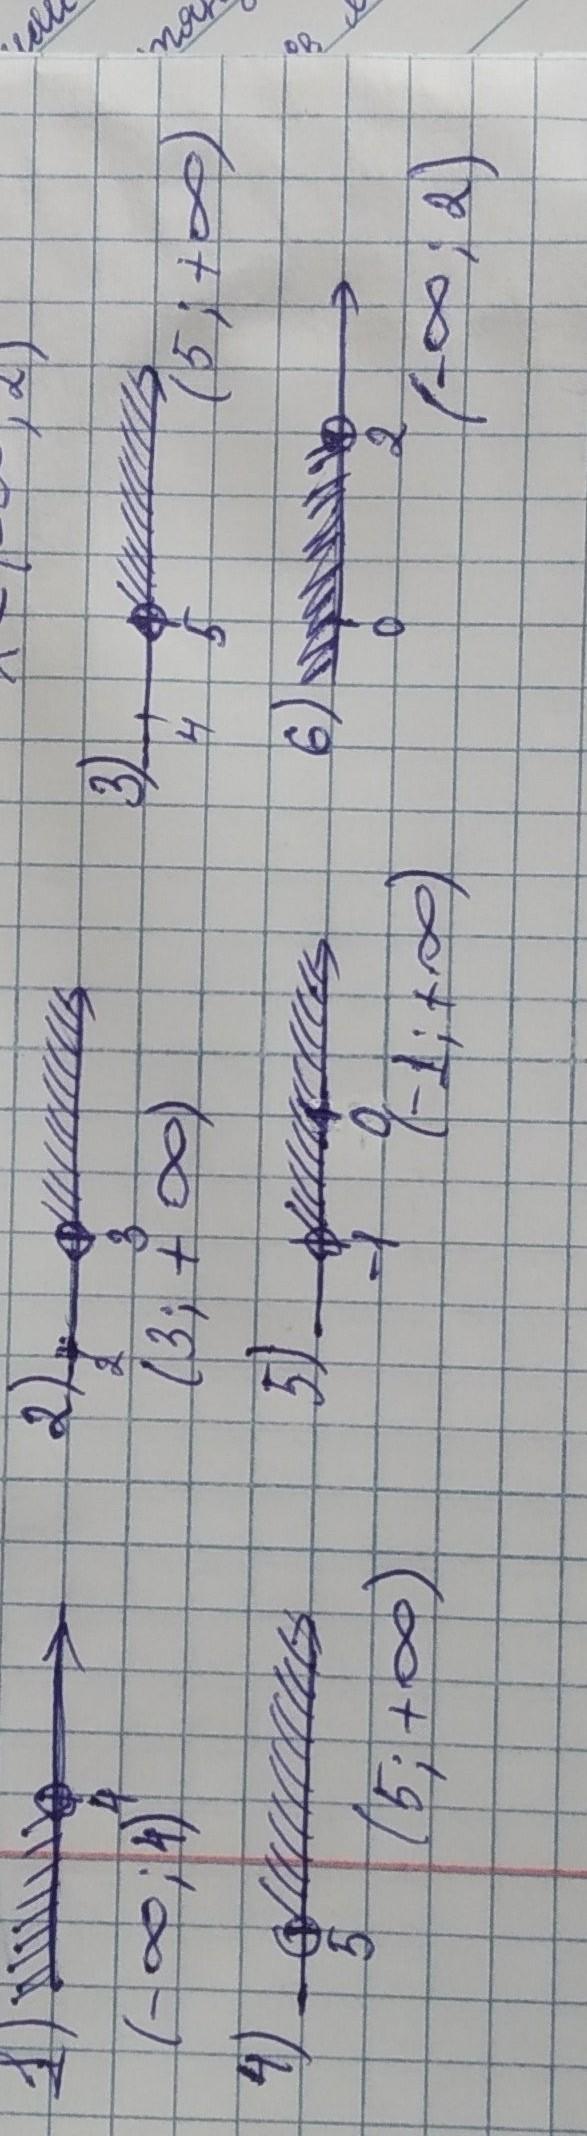 1)
4
(-∞; 4)
2)
2 3
(3; +∞)
3)
4 5
(5; +∞)
4)
5
(5; +∞)
5)
-1 0
(-1; +∞)
6)
0 2
(-∞; 2)